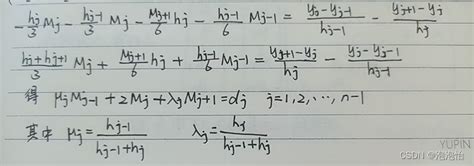 -\frac{h_j}{3}M_j - \frac{h_{j-1}}{3}M_j - \frac{M_{j+1}}{6}h_j - \frac{h_{j-1}}{6}M_{j-1} = \frac{y_j-y_{j-1}}{h_{j-1}} - \frac{y_{j+1}-y_j}{h_j}
\frac{h_j+h_{j+1}}{3}M_j + \frac{M_{j+1}}{6}h_j + \frac{h_{j-1}}{6}M_{j-1} = \frac{y_{j+1}-y_j}{h_j} - \frac{y_j-y_{j-1}}{h_{j-1}}
得 μ_jM_{j-1}+2M_j+λ_jM_{j+1}=d_j j=1,2,…,n-1
其中 μ_j=\frac{h_{j-1}}{h_{j-1}+h_j} λ_j=\frac{h_j}{h_{j-1}+h_j}
YUPIN
CSDN @泡泡怡